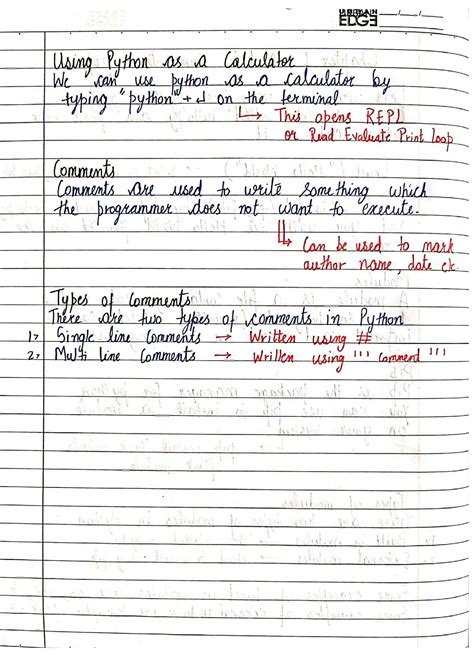 URBAN
EDGE
Using Python as a Calculator
We can use python as a calculator by
typing "python" + ↵ on the terminal
↳ This opens REPL
or Read Evaluate Print loop
Comments
Comments are used to write something which
the programmer does not want to execute.
↳ Can be used to mark
author name, date etc.
Types of Comments
There are two types of comments in Python
1> Single line Comments → Written using #
2> Multi line Comments → Written using ''' comment '''